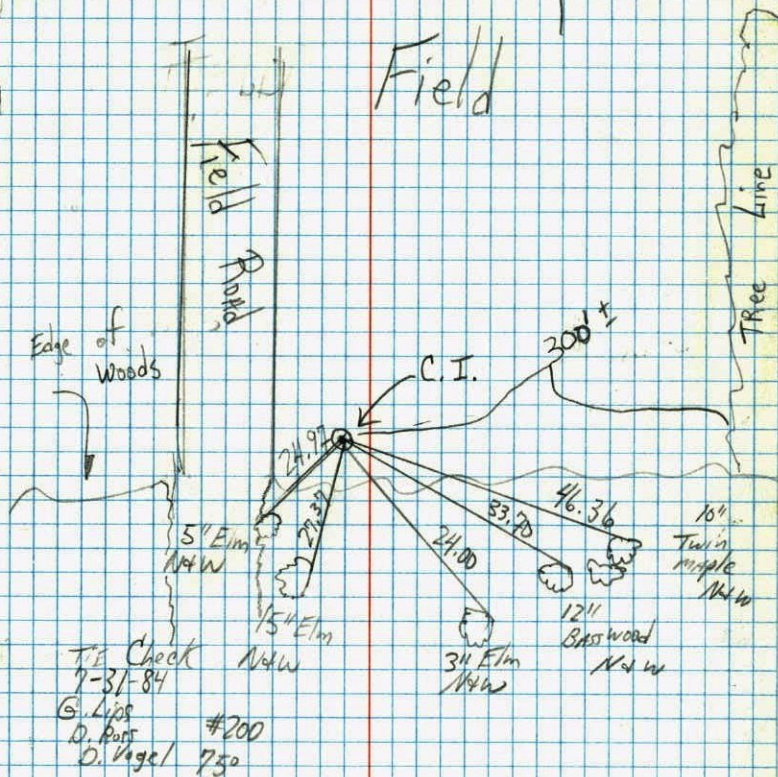 Field
Field Road
Tree Line
Edge of
woods
300' ±
C.I.
24.97
27.37
24.00
33.70
46.36
5" Elm
N&W
15" Elm
N&W
3" Elm
N&W
12"
Basswood
N&W
10"
Twin
maple
N&W
TIE Check
7-31-84
G. Lips
D. Ross
D. Vogel
#200
75°